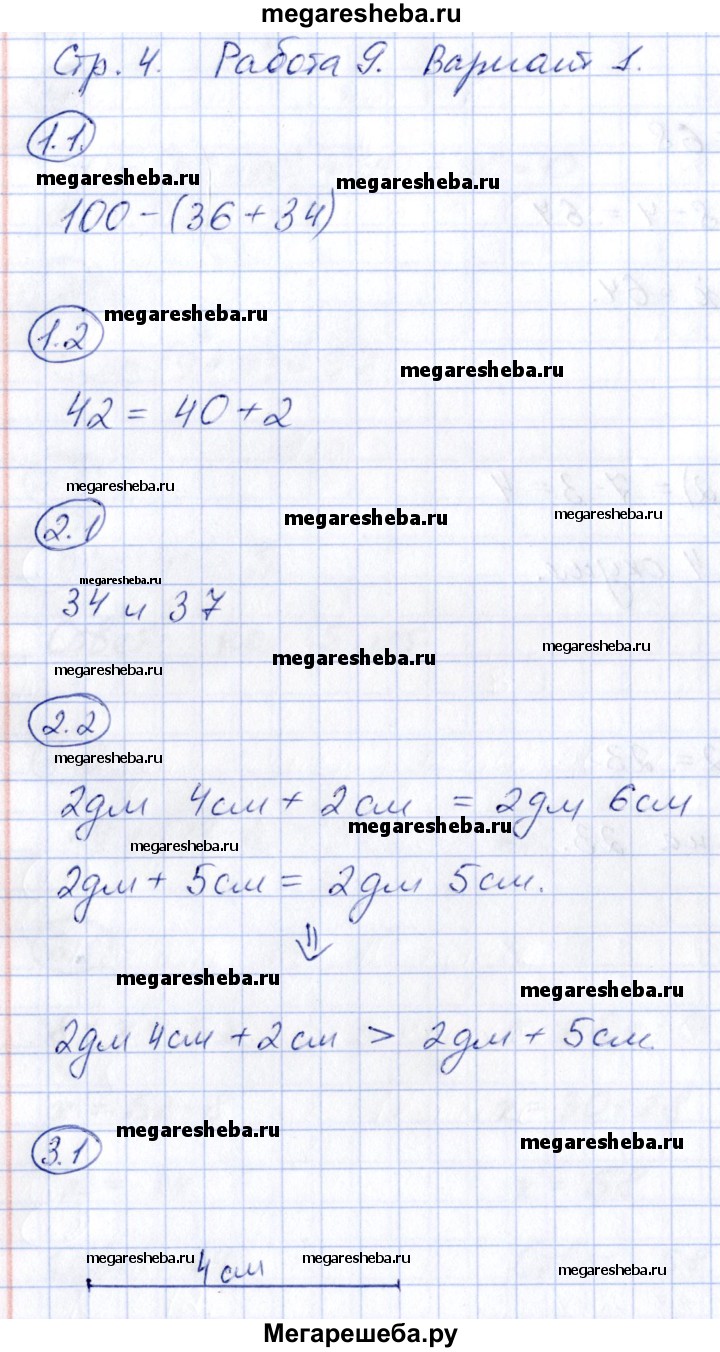 megaresheba.ru
Стр. 4. Работа 9. Вариант 1.
1.1.
megaresheba.ru
megaresheba.ru
100-(36+34)
1.2
megaresheba.ru
megaresheba.ru
42 = 40+2
megaresheba.ru
megaresheba.ru
2.1
megaresheba.ru
megaresheba.ru
34 и 37
megaresheba.ru
megaresheba.ru
megaresheba.ru
2.2
megaresheba.ru
2дм 4см + 2см = 2дм 6см
megaresheba.ru
megaresheba.ru
2дм + 5см = 2дм 5см.
⇓
megaresheba.ru
megaresheba.ru
2дм 4см + 2см > 2дм + 5см.
3.1
megaresheba.ru
megaresheba.ru
megaresheba.ru
4 см
megaresheba.ru
megaresheba.ru
Мегарешеба.ру